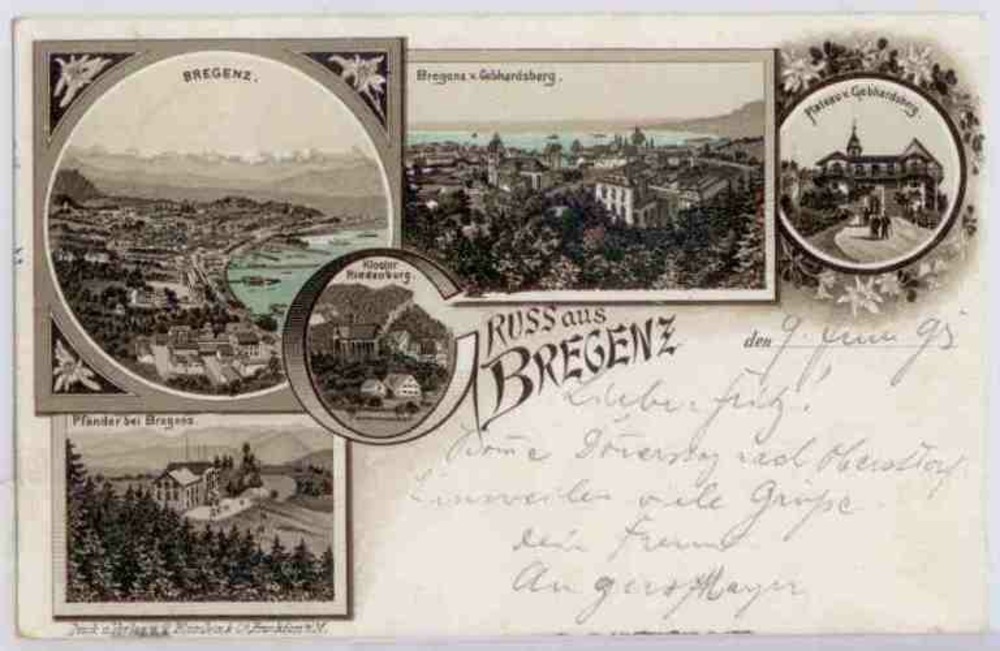 BREGENZ.
Bregenz v. Gebhardsberg.
Plateau v. Gebhardsberg.
Kloster
Riedenburg.
GRUSS aus
BREGENZ
den 9. Juni 95
Lieber Fritz!
Komme Donnerstag nach Oberstdorf.
Einsweilen viele Grüsse.
dein Freund
Mayer
Pfänder bei Bregenz.